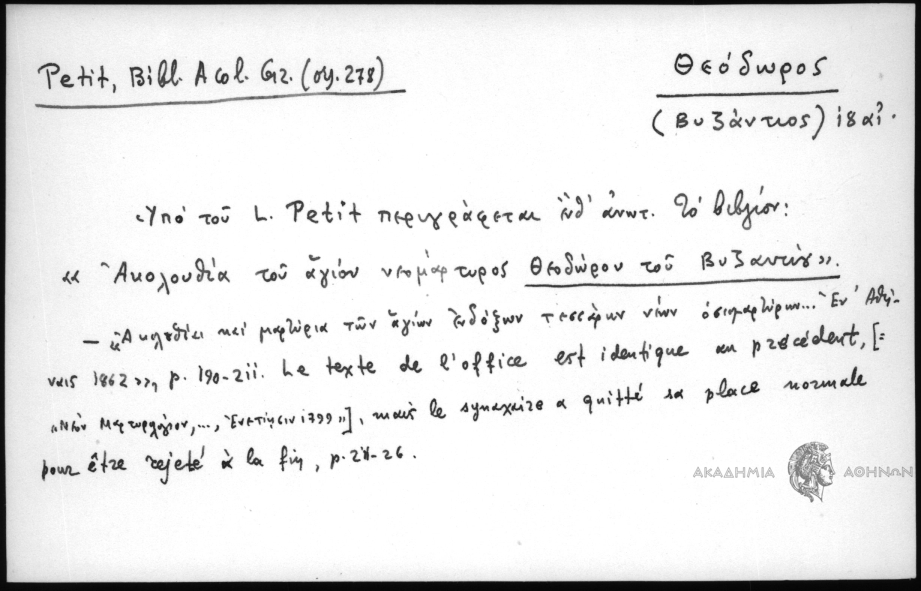 Petit, Bibl. Acol. Gr. (σ. 278)
Θεόδωρος
(Βυζάντιος) ιδ αἰ.
Ὑπὸ τοῦ L. Petit περιγράφεται ἐνθ' ἀνωτ. τὸ βιβλίον:
« Ἀκολουθία τοῦ ἁγίου νεομάρτυρος Θεοδώρου τοῦ Βυζαντίου».
— «Ἀκολουθίαι καὶ μαρτύρια τῶν ἁγίων ἐνδόξων τεσσάρων νέων ὁσιομαρτύρων... Ἐν Ἀθή-
ναις 1862», p. 190-211. Le texte de l'office est identique au précédent, [=
«Νέον Μαρτυρολόγιον,..., Ἐνετίησιν 1799»], mais le synaxaire a quitté sa place normale
pour être rejeté à la fin, p. -26.
ΑΚΑΔΗΜΙΑ ΑΘΗΝΩΝ